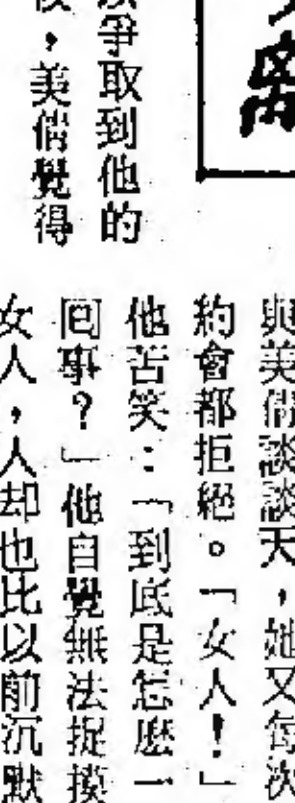 爭取到他的
，美倩覺得
與美倩談談天，她又每次
約會都拒絕。「女人！」
他苦笑：「到底是怎麼一
回事？」他自覺無法捉摸
女人，人却也比以前沉默